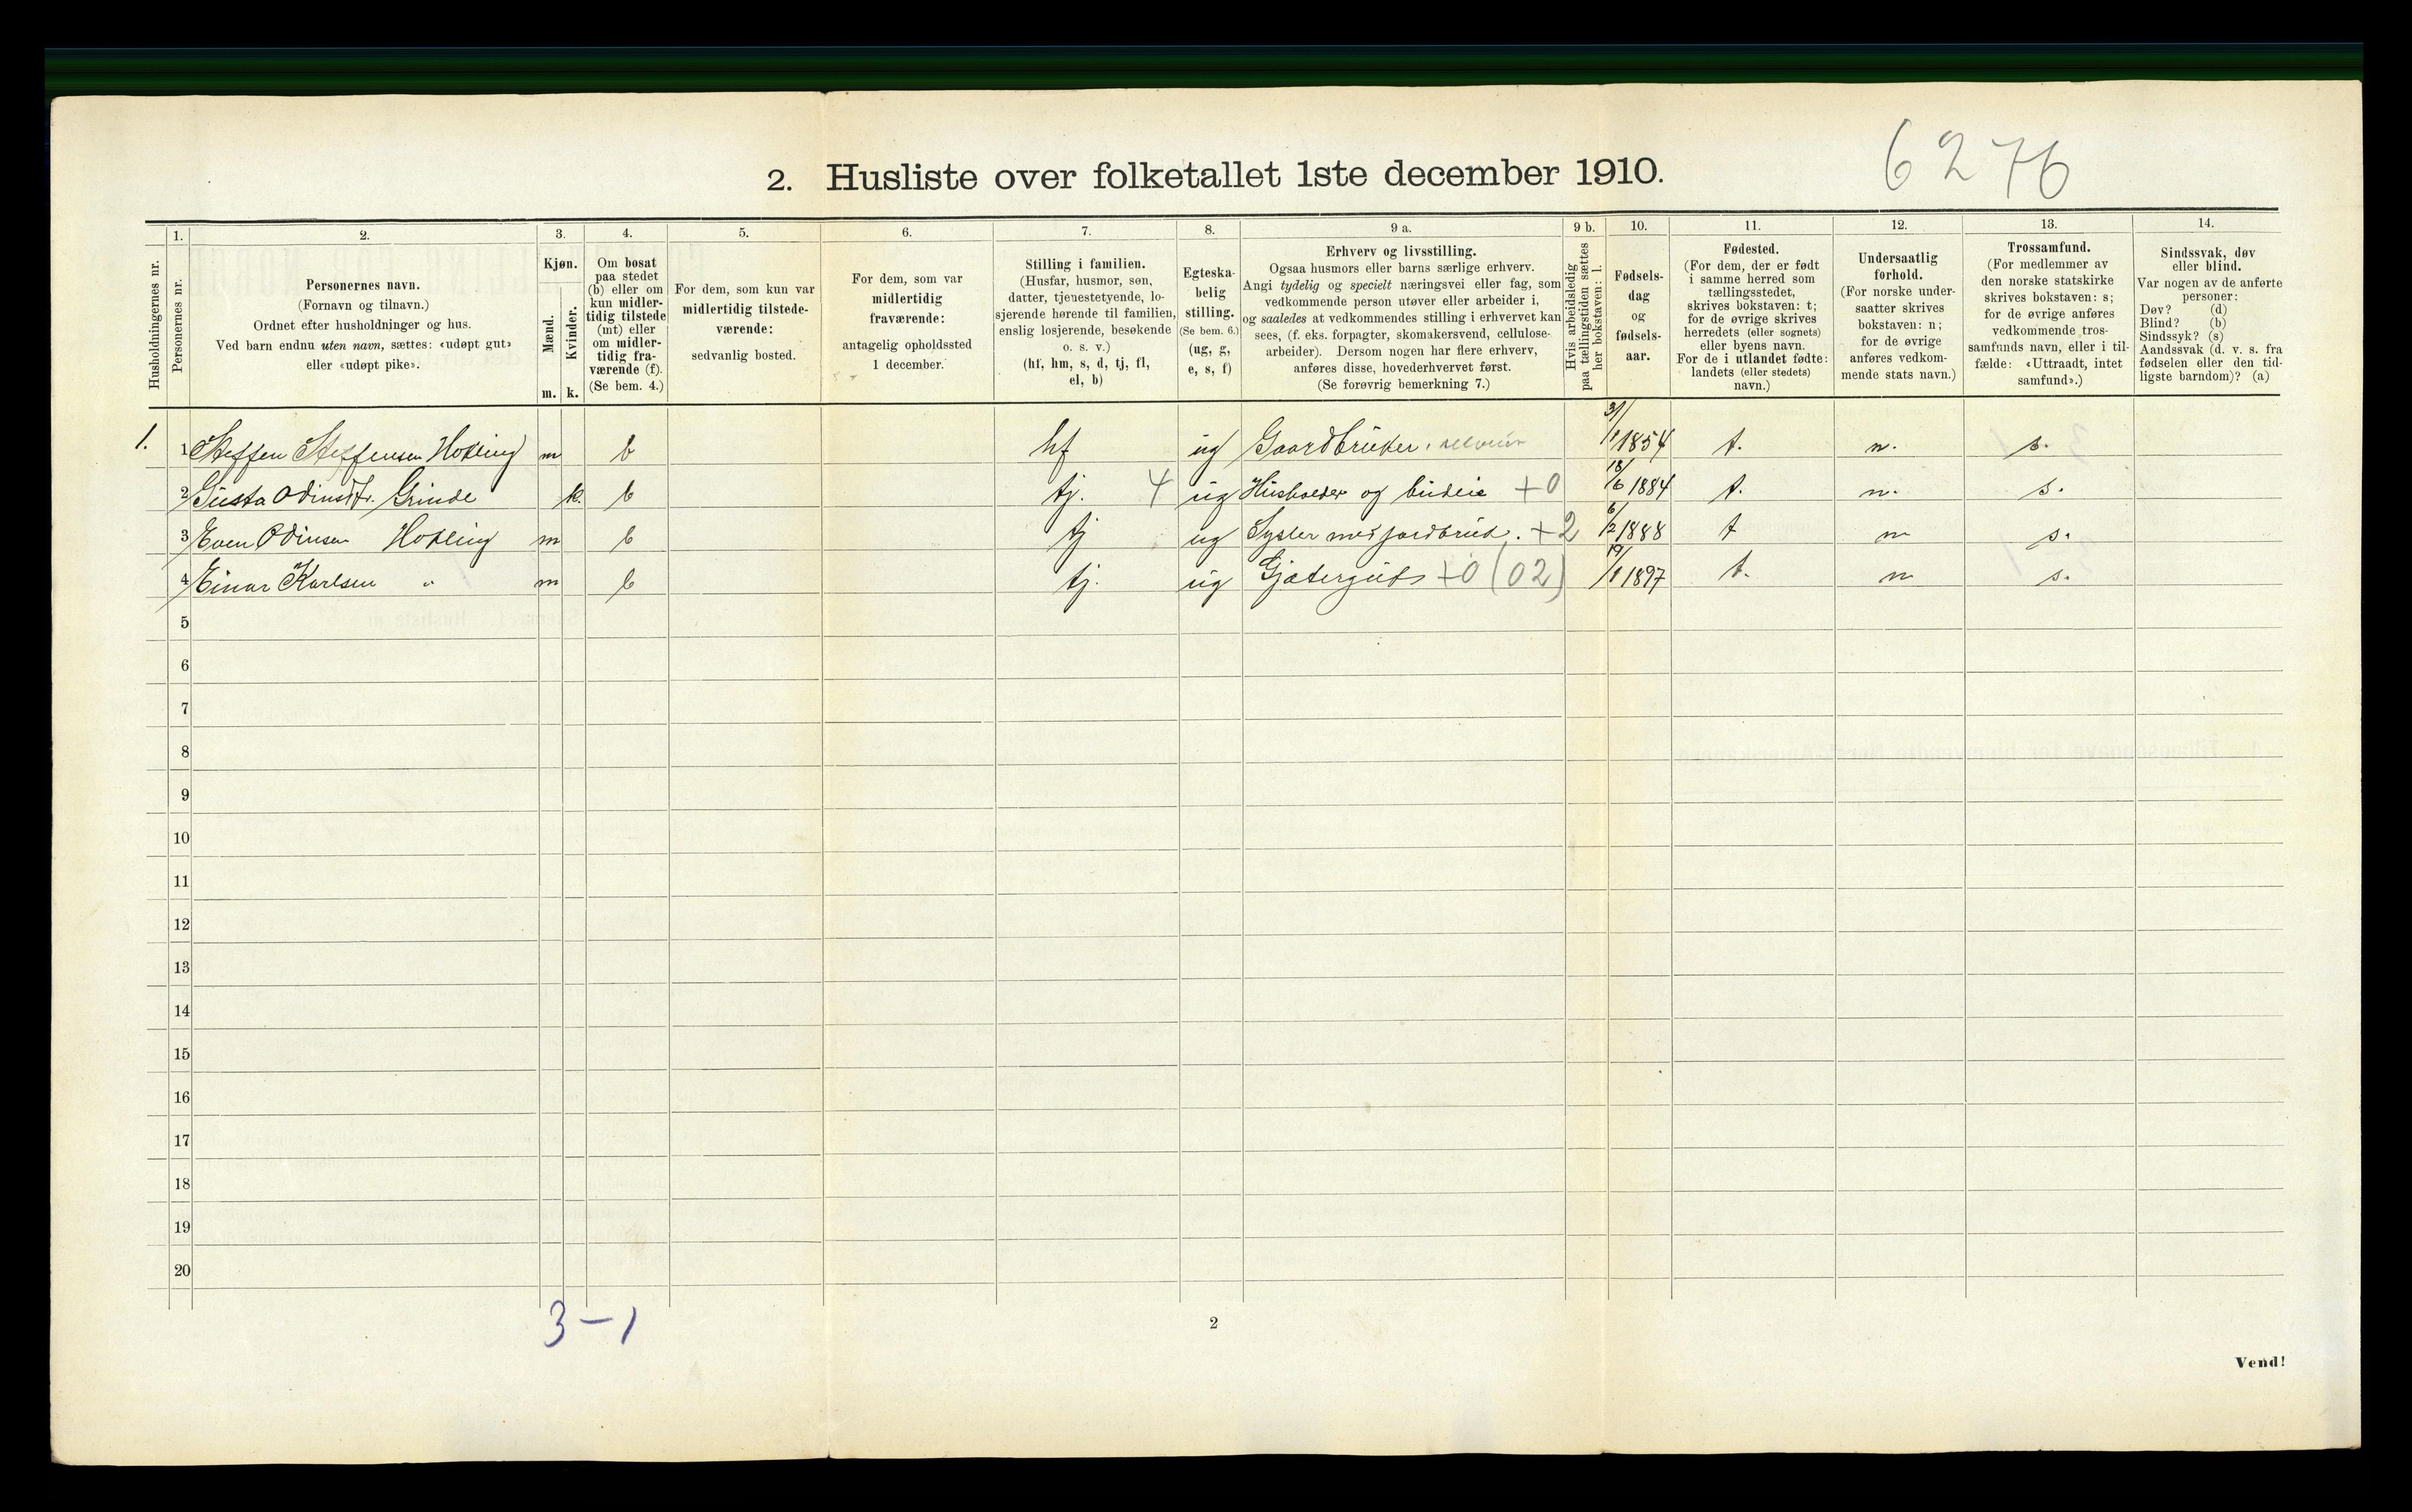 6276
2. Husliste over folketallet 1ste december 1910.
Husholdningernes nr.
1.
Personernes nr.
2.
Personernes navn.
(Fornavn og tilnavn.)
Ordnet efter husholdninger og hus.
Ved barn endnu uten navn, sættes: «udøpt gut»
eller «udøpt pike».
3.
Kjøn.
Mænd.
Kvinder.
m. k.
4.
Om bosat
paa stedet
(b) eller om
kun midler-
tidig tilstede
(mt) eller
om midler-
tidig fra-
værende (f).
(Se bem. 4.)
5.
For dem, som kun var
midlertidig tilstede-
værende:
sedvanlig bosted.
6.
For dem, som var
midlertidig
fraværende:
antagelig opholdssted
1 december.
7.
Stilling i familien.
(Husfar, husmor, søn,
datter, tjenestetyende, lo-
sjerende hørende til familien,
enslig losjerende, besøkende
o. s. v.)
(hf, hm, s, d, tj, fl,
el, b)
8.
Egteska-
belig
stilling.
(Se bem. 6.)
(ug, g,
e, s, f)
9 a.
Erhverv og livsstilling.
Ogsaa husmors eller barns særlige erhverv.
Angi tydelig og specielt næringsvei eller fag, som
vedkommende person utøver eller arbeider i,
og saaledes at vedkommendes stilling i erhvervet kan
sees, (f. eks. forpagter, skomakersvend, cellulose-
arbeider). Dersom nogen har flere erhverv,
anføres disse, hovederhvervet først.
(Se forøvrig bemerkning 7.)
9 b.
Hvis arbeidsledig
paa tællingstiden sættes
her bokstaven: l.
10.
Fødsels-
dag
og
fødsels-
aar.
11.
Fødested.
(For dem, der er født
i samme herred som
tællingsstedet,
skrives bokstaven: t;
for de øvrige skrives
herredets (eller sognets)
eller byens navn.
For de i utlandet fødte:
landets (eller stedets)
navn.)
12.
Undersaatlig
forhold.
(For norske under-
saatter skrives
bokstaven: n;
for de øvrige
anføres vedkom-
mende stats navn.)
13.
Trossamfund.
(For medlemmer av
den norske statskirke
skrives bokstaven: s;
for de øvrige anføres
vedkommende tros-
samfunds navn, eller i til-
fælde: «Uttraadt, intet
samfund».)
14.
Sindssvak, døv
eller blind.
Var nogen av de anførte
personer:
Døv? (d)
Blind? (b)
Sindssyk? (s)
Aandssvak (d. v. s. fra
fødselen eller den tid-
ligste barndom)? (a)
1. 1 Steffen Steffensen Hokling m b hf ug Gaardbruker, selveier 31/1 1854 t. n. s.
2 Gusta Odinsdtr. Grinde k b tj. 4 ug Husholder og budeie +0 18/6 1884 t. n. s.
3 Even Odinsen Hokling m b tj ug Sysler med jordbruk. +2 6/2 1888 t n s.
4 Einar Karlsen " m b tj. ug Gjætergut +0 (02) 19/1 1897 t. n s.
5
6
7
8
9
10
11
12
13
14
15
16
17
18
19
20
3-1
2
Vend!